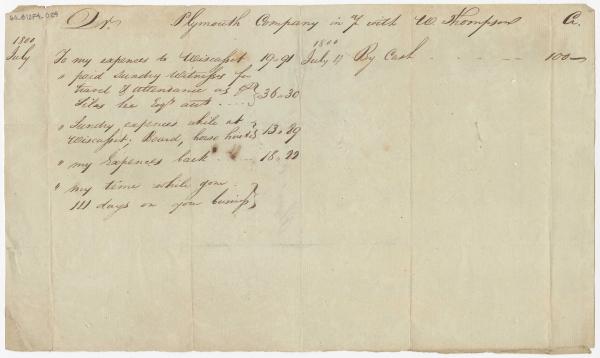 Dr. Plymouth Company in 7 with W Thompson Cr.
1800
July
To my expences to Wiscasset 19-91
" paid Sundry Witnesses for
travel & attendance as
Silas Lee Esqrs acct 36-30
" Sundry expences while at
Wiscasset, Board, horse 13-89
" my Expences back 18-22
" my time while gone
111 days on your business
1800
July 17 By Cash 100-